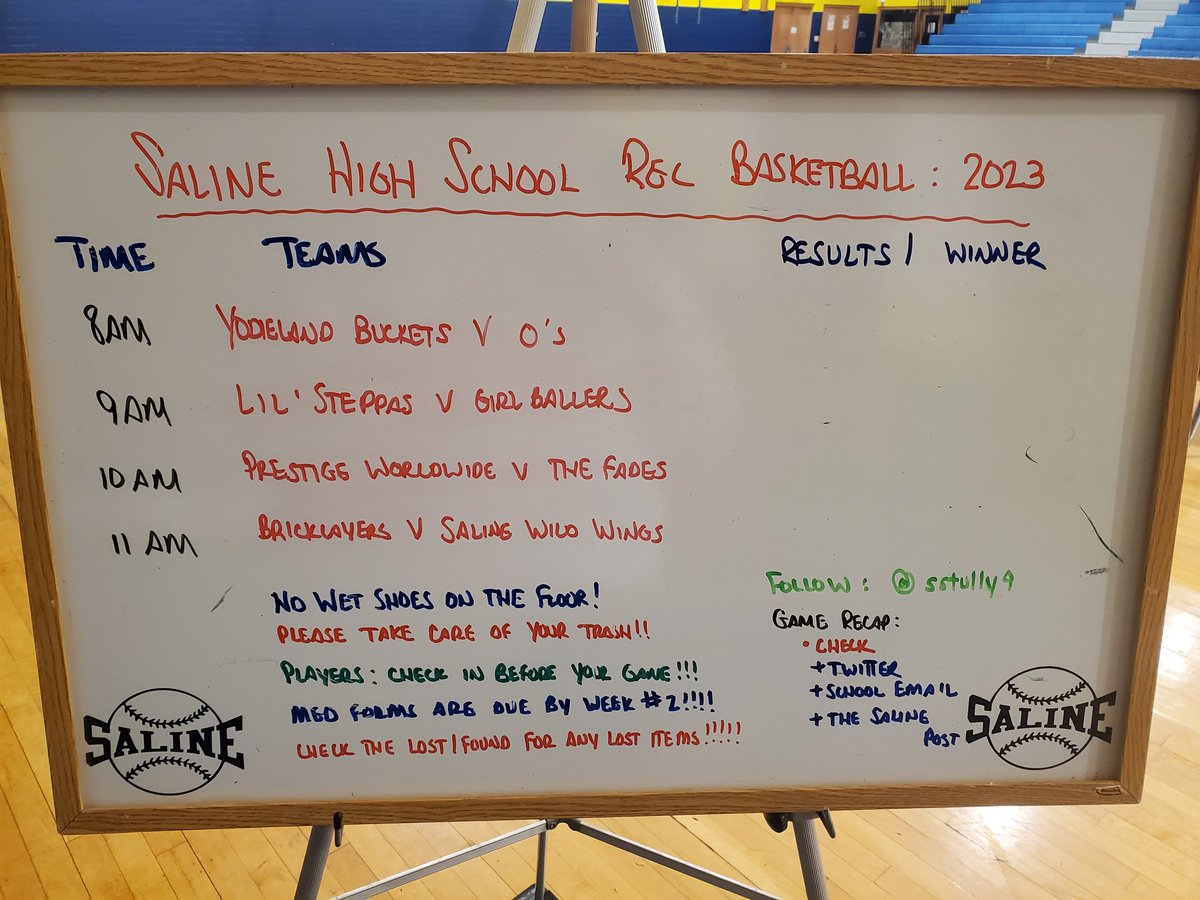 SALINE HIGH SCHOOL REC BASKETBALL: 2023
TIME TEAMS RESULTS / WINNER
8AM YODIELAND BUCKETS V O'S
9AM LIL' STEPPAS V GIRL BALLERS
10 AM PRESTIGE WORLDWIDE V THE FADES
11 AM BRICKLAYERS V SALINE WILD WINGS
NO WET SHOES ON THE FLOOR!
PLEASE TAKE CARE OF YOUR TRASH!!
PLAYERS: CHECK IN BEFORE YOUR GAME!!!
MED FORMS ARE DUE BY WEEK #2!!!!
CHECK THE LOST/FOUND FOR ANY LOST ITEMS!!!!!
FOLLOW: @sstully9
GAME RECAP:
• CHECK
+ TWITTER
+ SCHOOL EMAIL
+ THE SALINE
POST
SALINE
SALINE